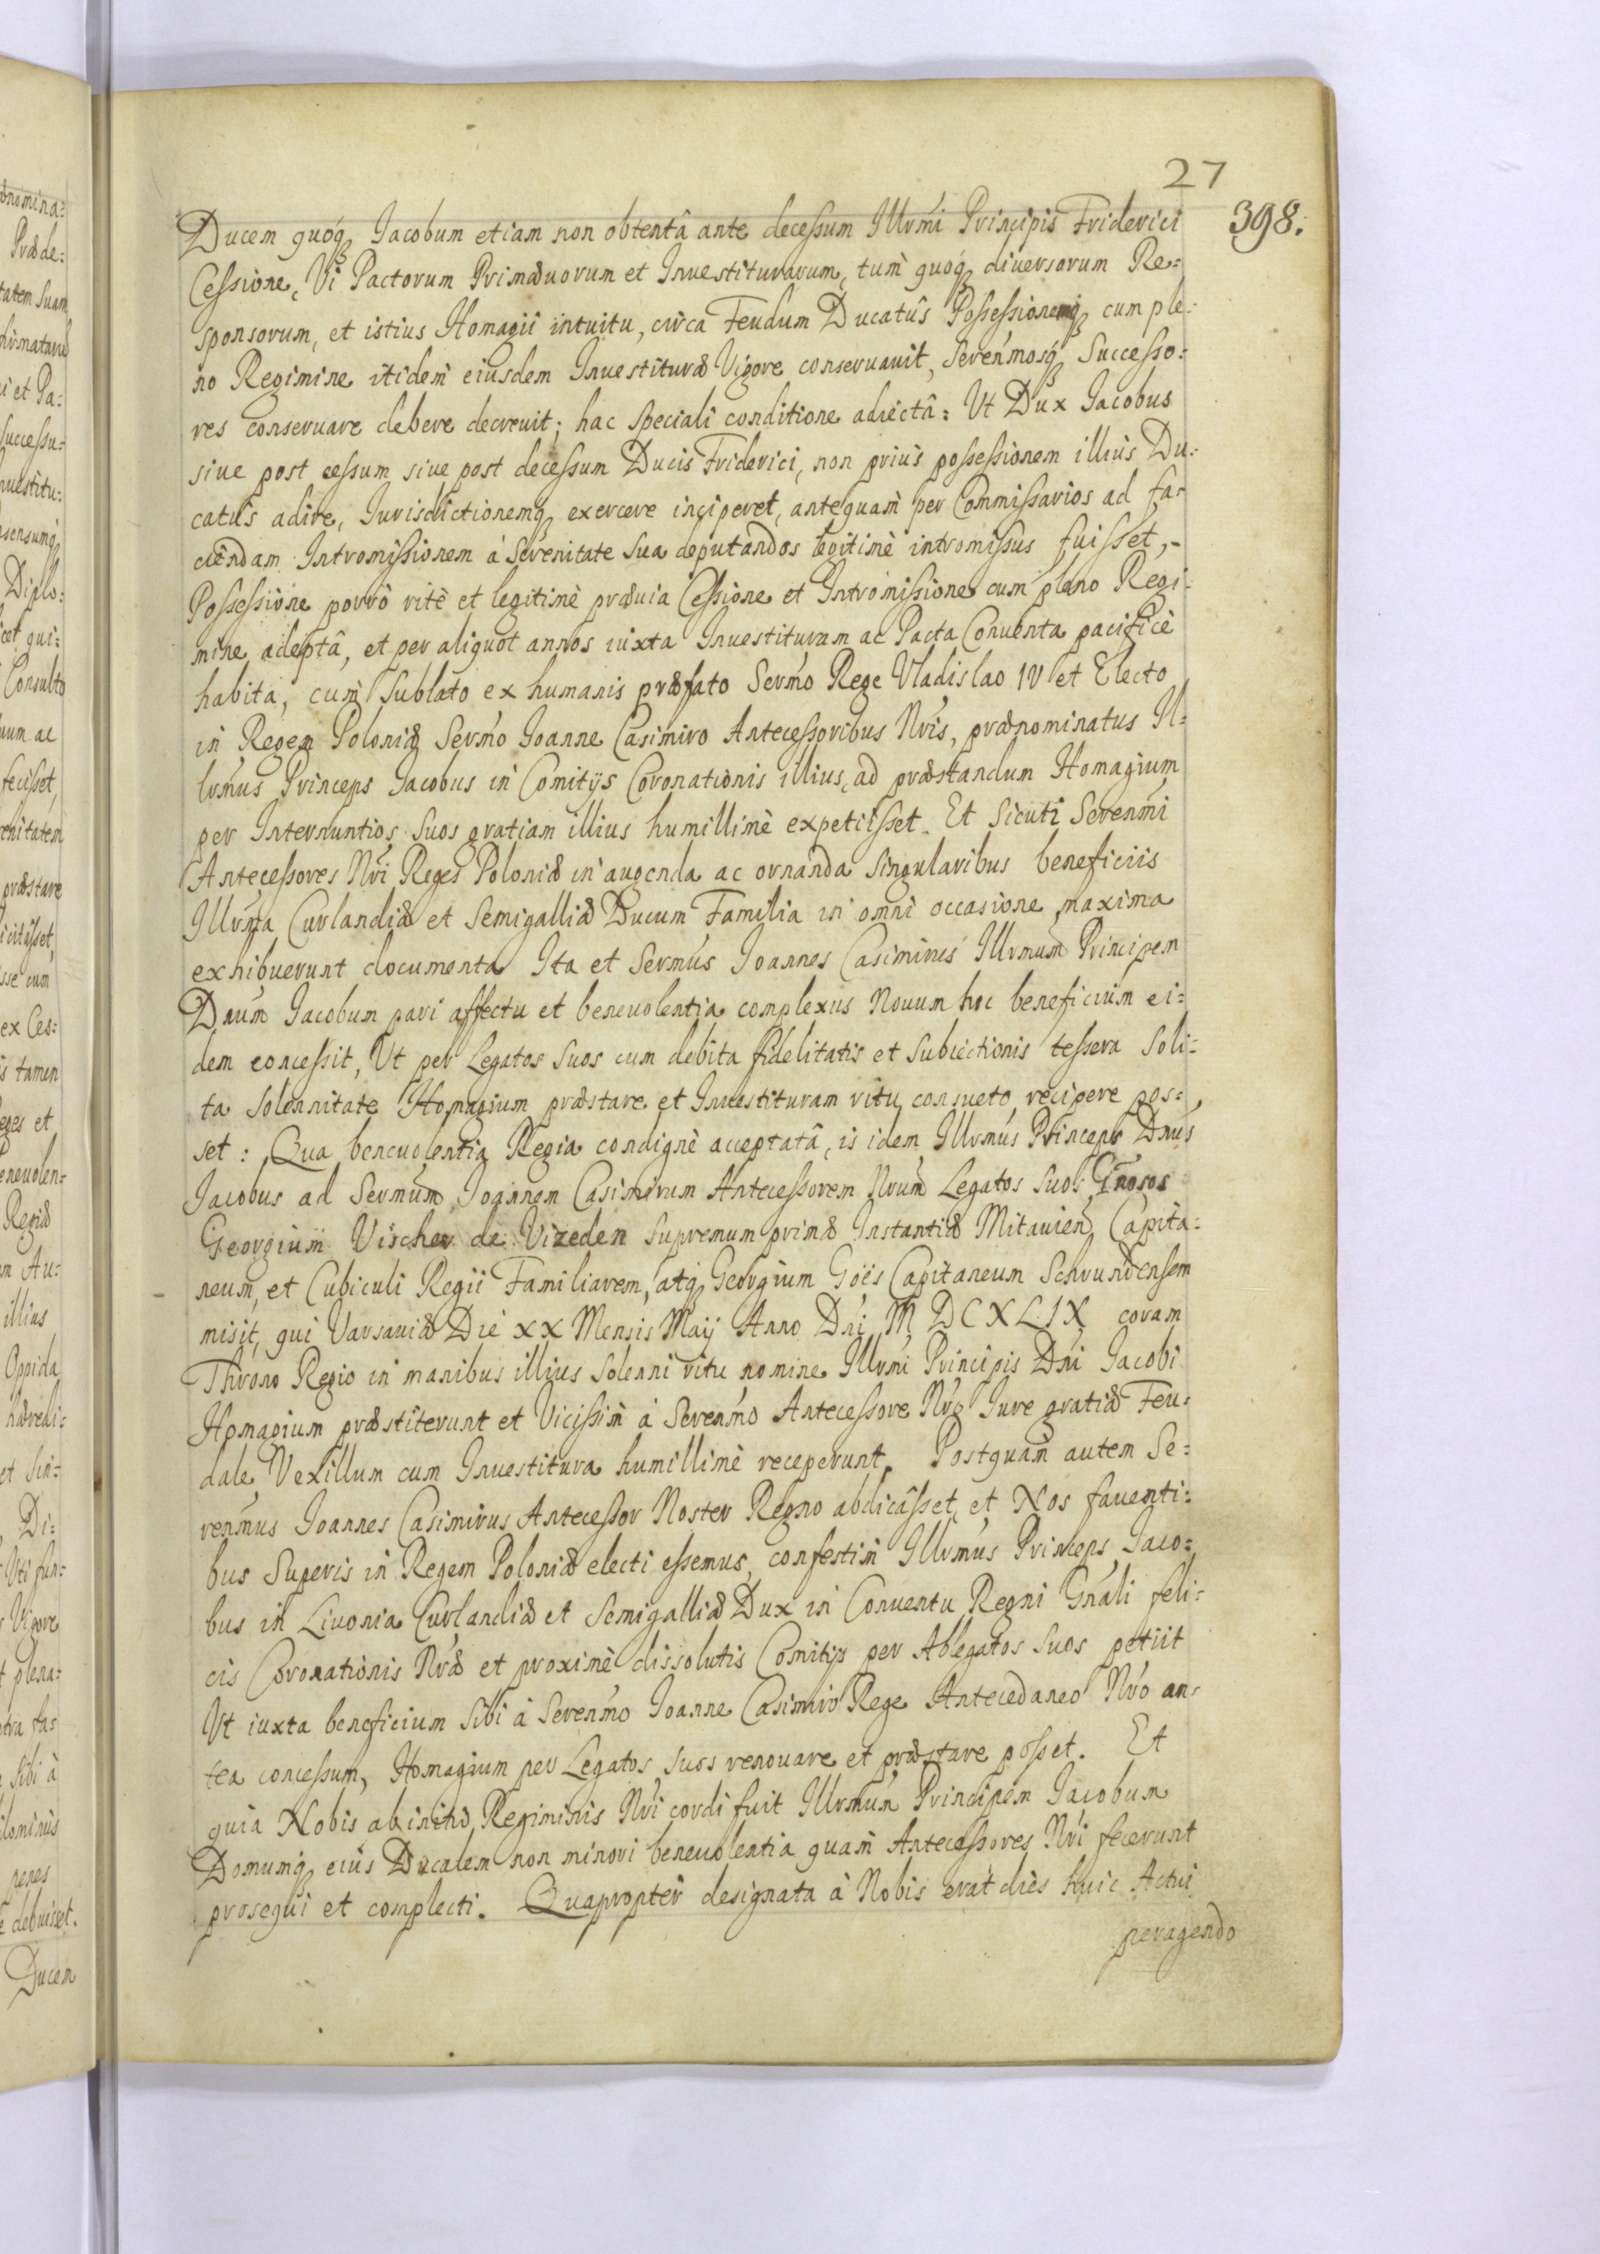 27
398.
Ducem quoq Jacobum etiam non obtentâ ante decessum Illrmi Principis Friderici
Cessione, Vi Pactorum Primævorum et Investiturarum, tum quoq diversorum Re=
sponsorum, et istius Homagii intuitu, circa Feudum Ducatûs Possessionemq cum ple=
no Regimine itidem eiusdem Investituræ Vigore conservavit, Serenmosq Successo=
res conservare debere decrevit; hac speciali conditione adiectâ: Ut Dux Jacobus
sive post cessum sive post decessum Ducis Friderici, non priùs possessionem illius Du=
catûs adire, Iurisdictionemq exercere inciperet, antequam per Commissarios ad fa=
ciendam Intromissionem à Serenitate Sua deputandos legitimè intromissus fuisset,-
Possessione porrò ritè et legitimè prævia Cessione et Intromissione cum pleno Regi=
mine adeptâ, et per aliquot annos iuxta Investituram ac Pacta Conventa pacificè
habita, cum Sublato ex humanis præfato Sermo Rege Vladislao IV et Electo
in Regem Poloniæ Sermo Joanne Casimiro Antecessoribus Nris, prænominatus Il=
lrmus Princeps Jacobus in Comitijs Coronationis illius, ad præstandum Homagium
per Internuntios suos gratiam illius humillimè expetiisset. Et Sicuti Serenmi
Antecessores Nri Reges Poloniæ in augenda ac ornanda singularibus beneficiis
Illrma Curlandiæ et Semigalliæ Ducum Familia in omni occasione maxima
exhibuerunt documenta Ita et Sermus Joannes Casimirus Illrmum Principem
Dnum Jacobum pari affectu et benevolentia complexus Novum hoc beneficium ei=
dem concessit, Ut per Legatos suos cum debita fidelitatis et subiectionis tessera Soli=
ta Solennitate Homagium præstare et Investituram ritu consueto recipere pos=
set: Qua benevolentia Regia condignè acceptatâ, is idem Illrmus Princeps Dnus
Jacobus ad Sermum Joannem Casimirum Antecessorem Nrum Legatos suos Gnosos
Georgium Vischer de Vizeden Supremum primæ Instantiæ Mitavien Capita=
neum, et Cubiculi Regii Familiarem, atq Georgium Goës Capitaneum Schrundensem
misit, qui Varsaviæ Die XX Mensis Maij Anno Dni M DC XLIX coram
Throno Regio in manibus illius solenni ritu nomine Illrmi Principis Dni Jacobi
Homagium præstiterunt et Vicissim à Serenmo Antecessore Nro Jure gratiæ Feu=
dale Vexillum cum Investitura humillimè receperunt. Postquam autem Se=
renmus Joannes Casimirus Antecessor Noster Regno abdicâsset, et Nos faventi=
bus Superis in Regem Poloniæ electi essemus, confestim Illrmus Princeps Jaco=
bus in Livonia Curlandiæ et Semigalliæ Dux in Conventu Regni Gnali feli=
cis Coronationis Nræ et proximè dissolutis Comitijs per Ablegatos suos petiit
Ut iuxta beneficium sibi à Serenmo Joanne Casimiro Rege Antecedaneo Nro an=
tea concessum, Homagium per Legatos suos renovare et præstare posset. Et
quia Nobis ab initio Regiminis Nri cordi fuit Illrmum Principem Jacobum
Domumq eius Ducalem non minori benevolentia quam Antecessores Nri fecerunt
prosequi et complecti. Quapropter designata à Nobis erat dies huic Actui
peragendo